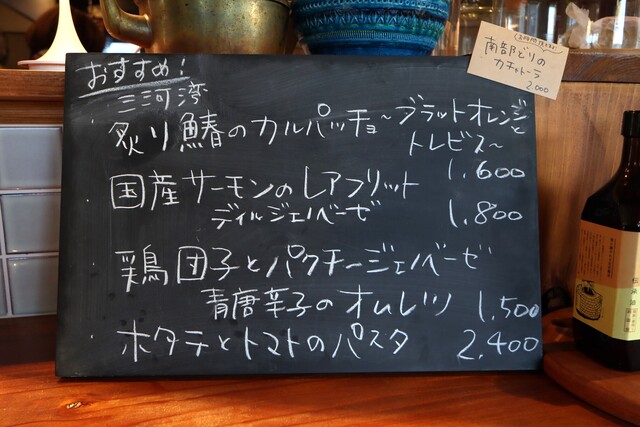 おすすめ!
三河湾
炙り鰆のカルパッチョ〜ブラットオレンジと
トレビス〜
1.600
国産サーモンのレアフリット
ディルジェノベーゼ 1,800
鶏団子とパクチージェノベーゼ
青唐辛子のオムレツ 1,500
ホタテとトマトのパスタ 2,400
南部どりの
カチャトーラ
2.000